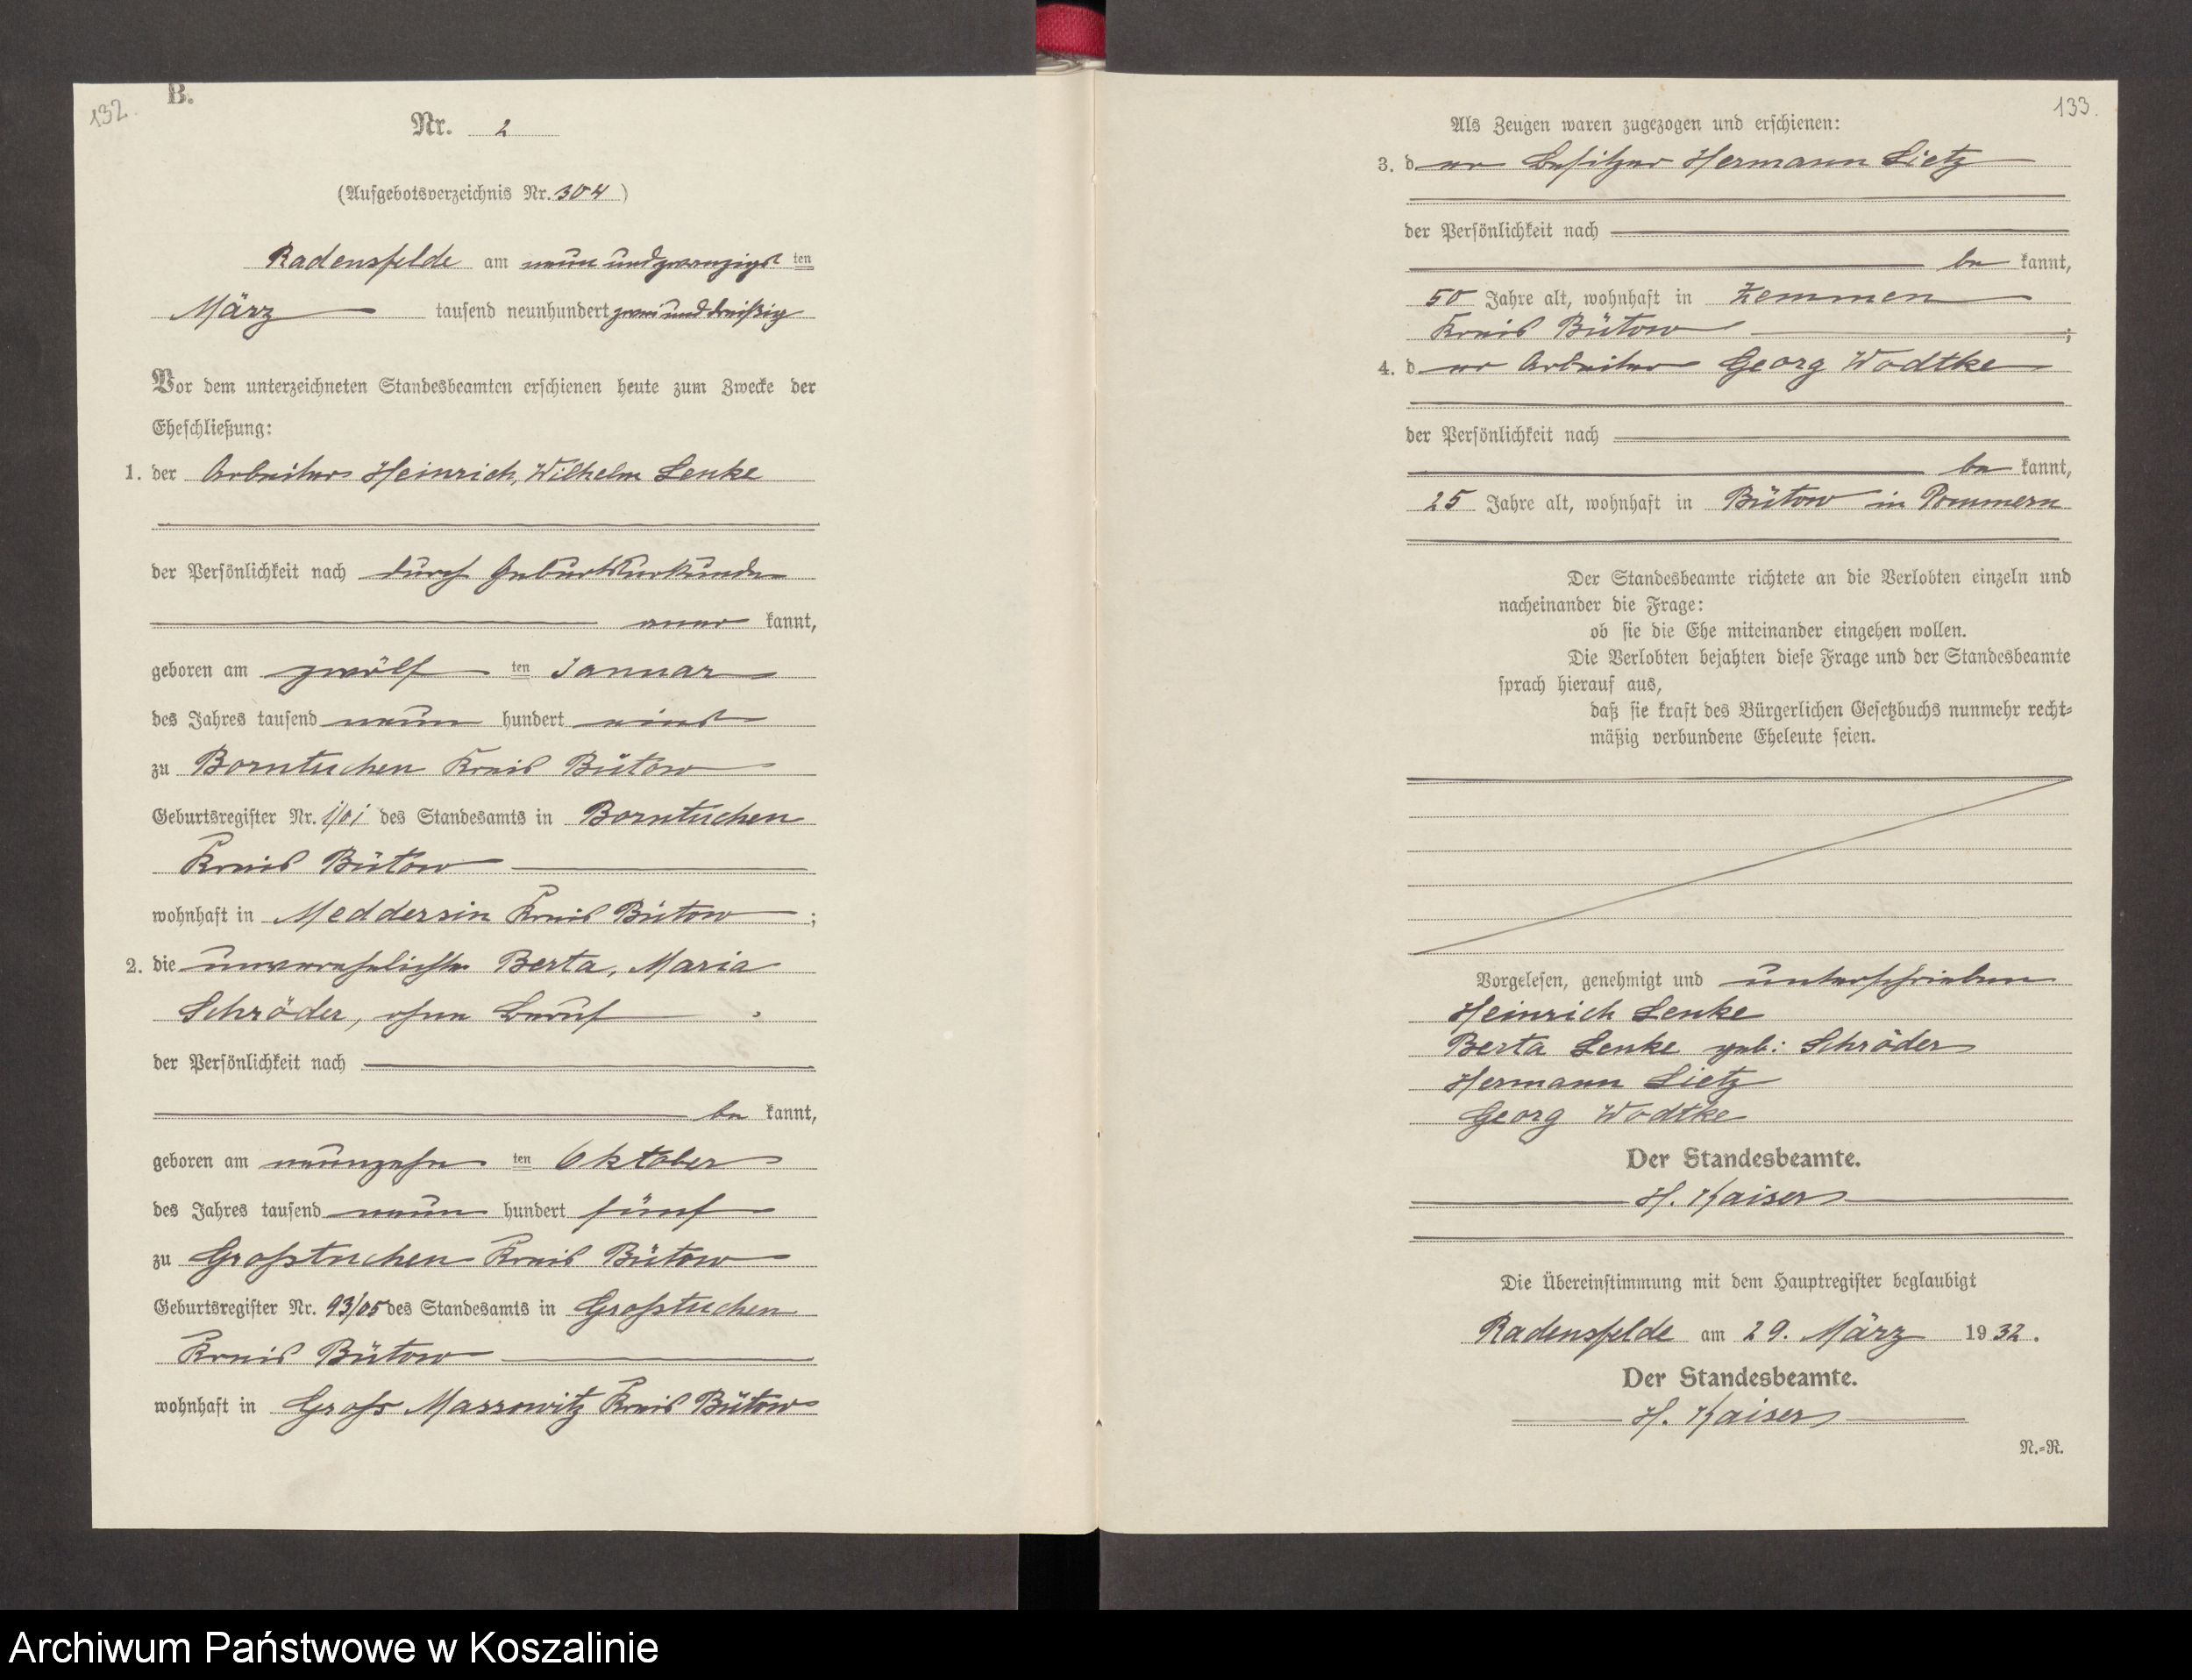 132.
B.
Nr. 2
(Aufgebotsverzeichnis Nr. 304)
Radensfelde am neun und zwanzigst ten
März tausend neunhundert zwei und dreißig
Vor dem unterzeichneten Standesbeamten erschienen heute zum Zwecke der
Eheschließung:
1. der Arbeiter Heinrich, Wilhelm Lenke
der Persönlichkeit nach durch Geburtsurkunde
aner kannt,
geboren am zwölf ten Januar
des Jahres tausend neun hundert eins
zu Borntuchen Kreis Bütow
Geburtsregister Nr. 1/01 des Standesamts in Borntuchen
Kreis Bütow
wohnhaft in Meddersin Kreis Bütow ;
2. die unverehelichte Berta, Maria
Schröder, ohne Beruf
der Persönlichkeit nach
be kannt,
geboren am neunzehn ten Oktober
des Jahres tausend neun hundert fünf
zu Großtuchen Kreis Bütow
Geburtsregister Nr. 93/05 des Standesamts in Großtuchen
Kreis Bütow
wohnhaft in Groß Massowitz Kreis Bütow
133.
Als Zeugen waren zugezogen und erschienen:
3. d er Besitzer Hermann Lietz
der Persönlichkeit nach
be kannt,
50 Jahre alt, wohnhaft in Zemmen
Kreis Bütow ;
4. d er Arbeiter Georg Wodtke
der Persönlichkeit nach
be kannt,
25 Jahre alt, wohnhaft in Bütow in Pommern
Der Standesbeamte richtete an die Verlobten einzeln und
nacheinander die Frage:
ob sie die Ehe miteinander eingehen wollen.
Die Verlobten bejahten diese Frage und der Standesbeamte
sprach hierauf aus,
daß sie kraft des Bürgerlichen Gesetzbuchs nunmehr recht-
mäßig verbundene Eheleute seien.
Vorgelesen, genehmigt und unterschrieben
Heinrich Lenke
Berta Lenke geb: Schröder
Hermann Lietz
Georg Wodtke
Der Standesbeamte.
H. Kaiser
Die Übereinstimmung mit dem Hauptregister beglaubigt
Radensfelde am 29. März 1932.
Der Standesbeamte.
H. Kaiser
N.-R.
Archiwum Państwowe w Koszalinie